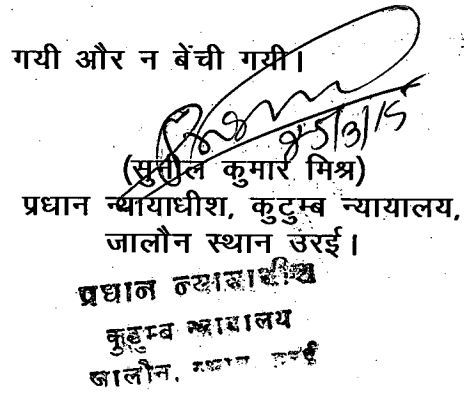 गयी और न बेंची गयी।
25/3/15
(सुनील कुमार मिश्र)
प्रधान न्यायाधीश, कुटुम्ब न्यायालय,
जालौन स्थान उरई।
प्रधान न्यायाधीश
कुटुम्ब न्यायालय
जालौन, स्थान उरई